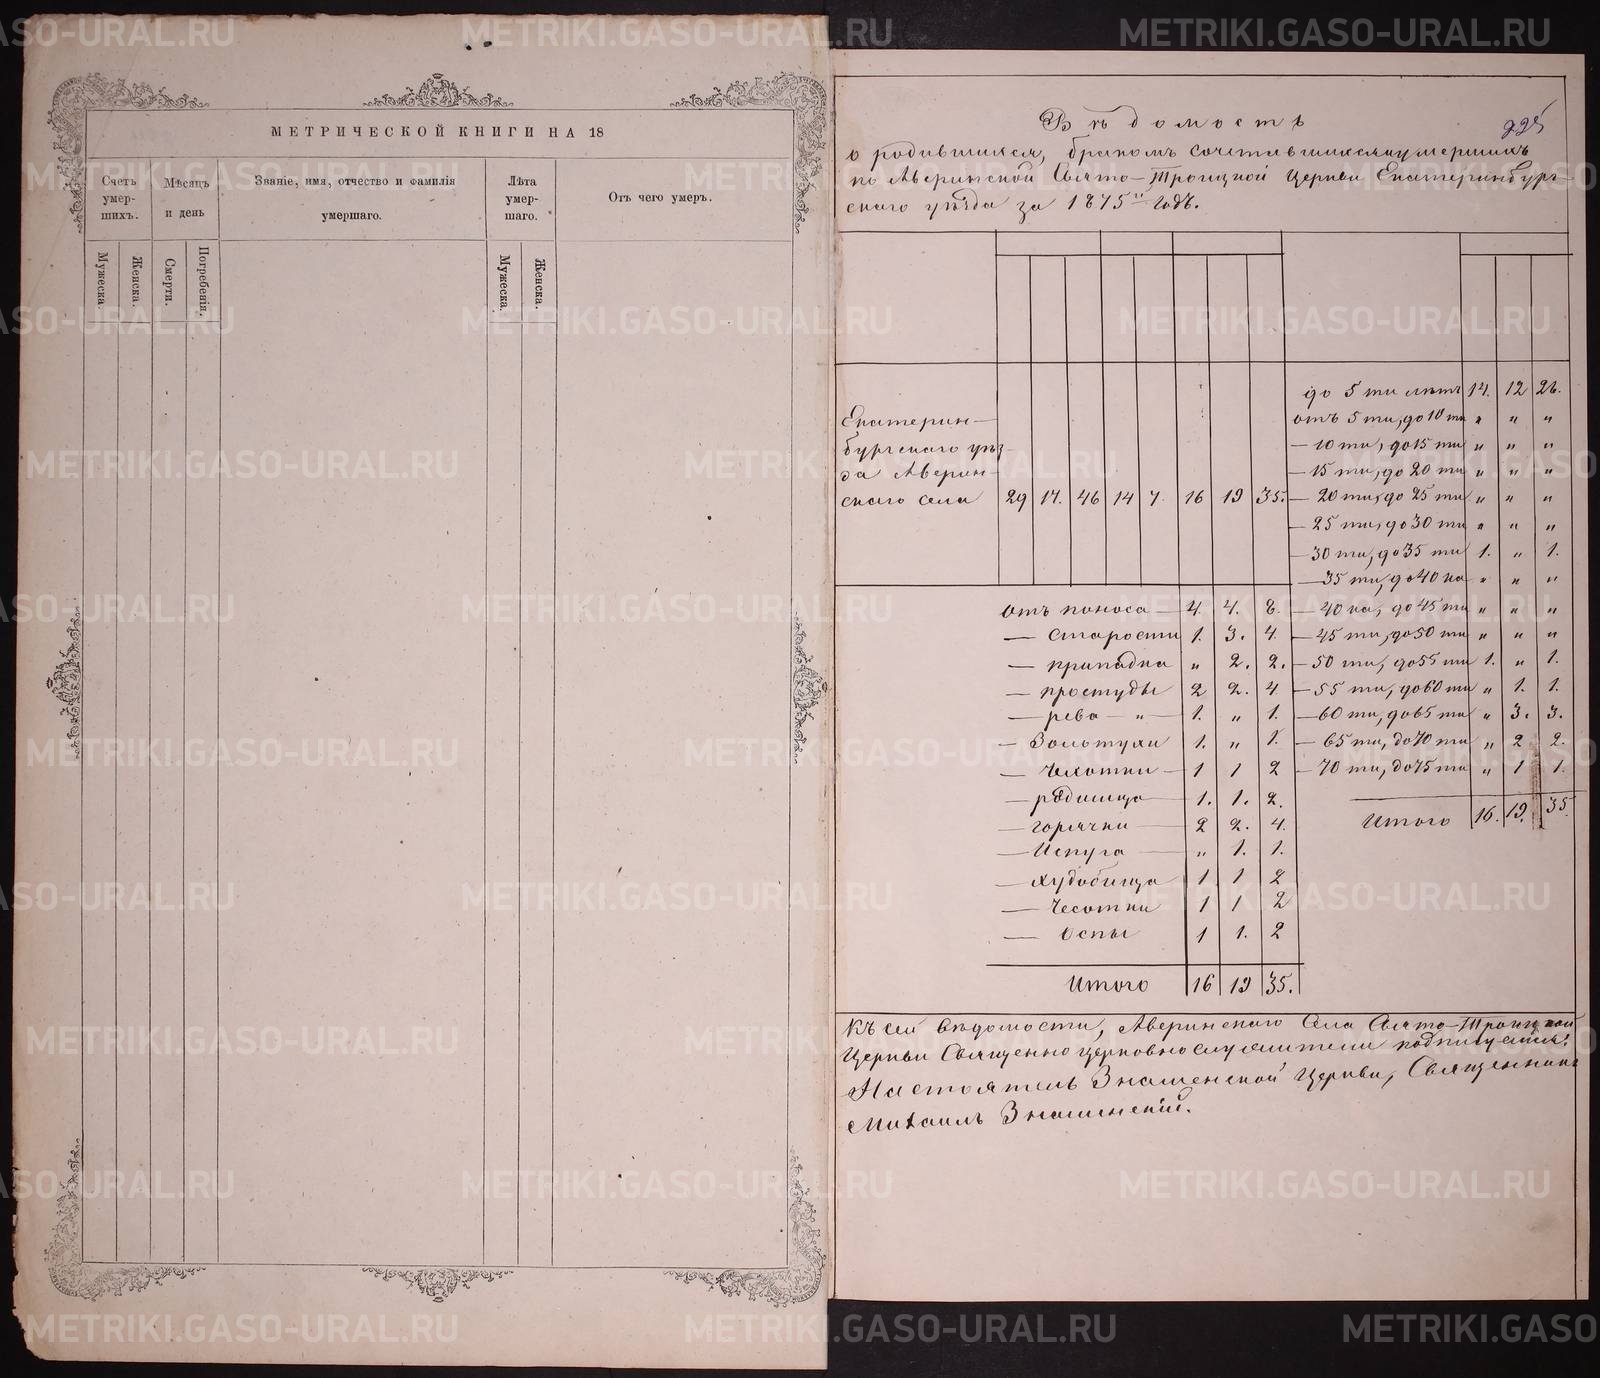 МЕТРИЧЕСКОЙ КНИГИ НА 18
Счетъ умер-шихъ.
Мѣсяцъ и день
Званіе, имя, отчество и фамилія умершаго.
Лѣта умер-шаго.
Отъ чего умеръ.
Мужеска.
Женска.
Смерти.
Погребенія.
Мужеска.
Женска.
Вѣдомость
225
о родившихся, бракомъ сочетавшихся и умершихъ
по Аверинской Свято-Троицкой Церкви Екатеринбург-
скаго уѣзда за 1875й годъ.
Екатерин-
бургскаго уѣз-
да Аверин-
скаго села 29 17. 46 14 7. 16 19 35.
до 5 ти лѣтъ 14. 12 26.
отъ 5 ти, до 10 ти " " "
— 10 ти, до 15 ти " " "
— 15 ти, до 20 ти " " "
— 20 ти, до 25 ти " " "
— 25 ти, до 30 ти " " "
— 30 ти, до 35 ти 1. " 1.
— 35 ти, до 40 ка " " "
— 40 ка, до 45 ти " " "
— 45 ти, до 50 ти " " "
— 50 ти, до 55 ти 1. " 1.
— 55 ти, до 60 ти " 1. 1.
— 60 ти, до 65 ти " 3. 3.
— 65 ти, до 70 ти " 2 2.
— 70 ти, до 75 ти " 1 1.
Итого 16. 19. 35.
отъ поноса — 4. 4. 8.
— Старости 1. 3. 4.
— припадка " 2. 2.
— простуды 2 2. 4
— рева — " — 1. " 1.
— Золотухи 1. " 1.
— Чехотки — 1 1 2
— родимца — 1. 1. 2.
— горячки — 2 2. 4.
— Испуга — " 1. 1.
— худобища 1. 1 2
— Чесотки 1 1 2
— Оспы 1 1. 2
Итого 16 19 35.
Къ сей вѣдомости, Аверинскаго Села Свято-Троицкой
Церкви Священно церковно служители подписуемся:
Настоятель Знаменской Церкви, Священникъ
Михаилъ Знаменскій.
METRIKI.GASO-URAL.RU